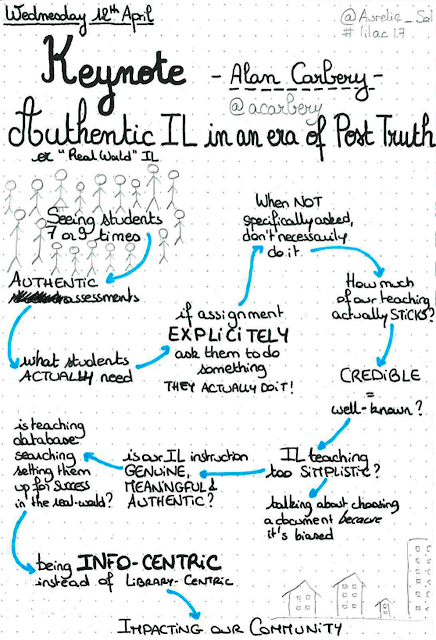 Wednesday 12th April
@Aurelie_Sol
#lilac17
Keynote - Alan Carbery -
@acarbery
Authentic IL in an era of Post Truth
or "Real World" IL
Seeing students
7 or 9 times
AUTHENTIC
assessments
what students
ACTUALLY need
if assignment
EXPLICITELY
ask them to do
something
THEY ACTUALLY DO IT!
When NOT
specifically asked,
don't necessarily
do it
How much
of our teaching
actually STICKS?
CREDIBLE
=
well-known?
IL teaching
too SIMPLISTIC?
talking about choosing
a document because
it's biased
is our IL instruction
GENUINE,
MEANINGFUL &
AUTHENTIC?
is teaching
database
searching
setting them
up for success
in the real-world?
being INFO-CENTRIC
instead of LIBRARY-CENTRIC
IMPACTING OUR COMMUNITY